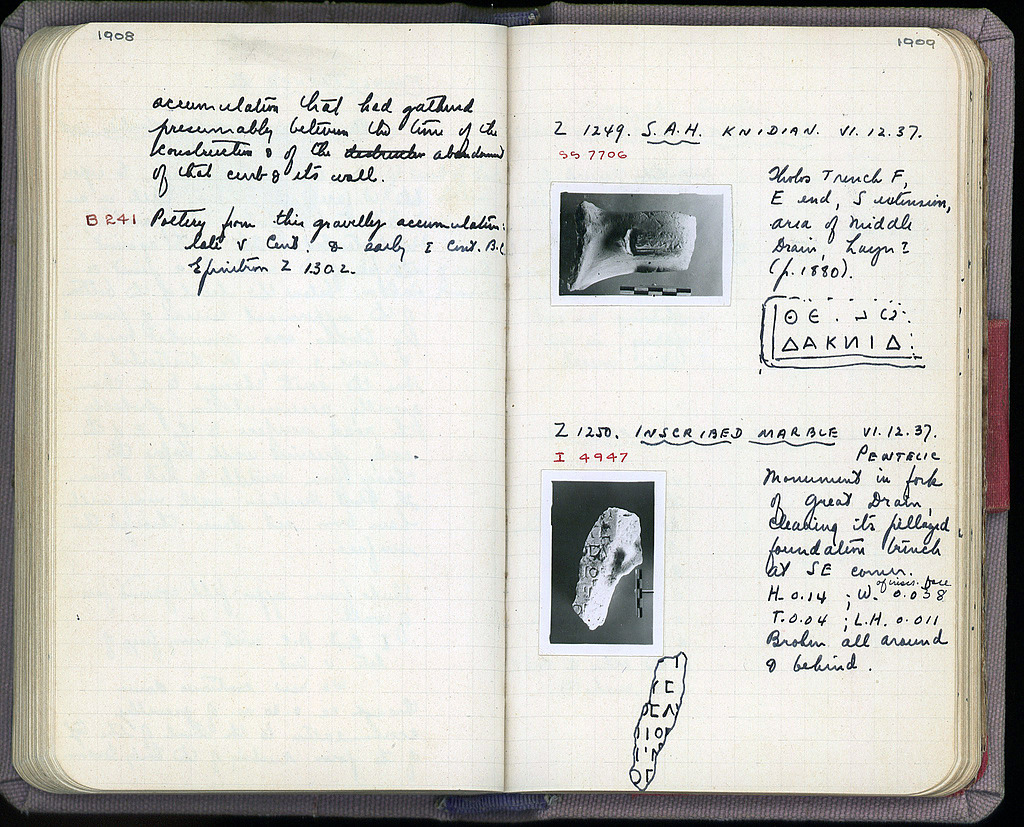 1908
accumulation that had gathered
presumably between the time of the
construction & of the destruction abandonment
of that curb & its wall.
B 241 Pottery from this gravelly accumulation:
late V Cent. & early I Cent. B.C.
Epinetron Z 1302.
1909
Z 1249. S.A.H. KNIDIAN. VI.12.37.
SS 7706
Tholos Trench F,
E end, S extension,
area of Middle
Drain, Layer 2
(p. 1880).
ΘΕ
ΔΑΚΝΙΔ
Z 1250. INSCRIBED MARBLE VI.12.37.
I 4947 PENTELIC
Monument in fork
of Great Drain,
cleaning its pillaged
foundation trench
at SE corner.
of inscr. face
H. 0.14 ; W. 0.058
T. 0.04 ; L.H. 0.011
Broken all around
& behind.